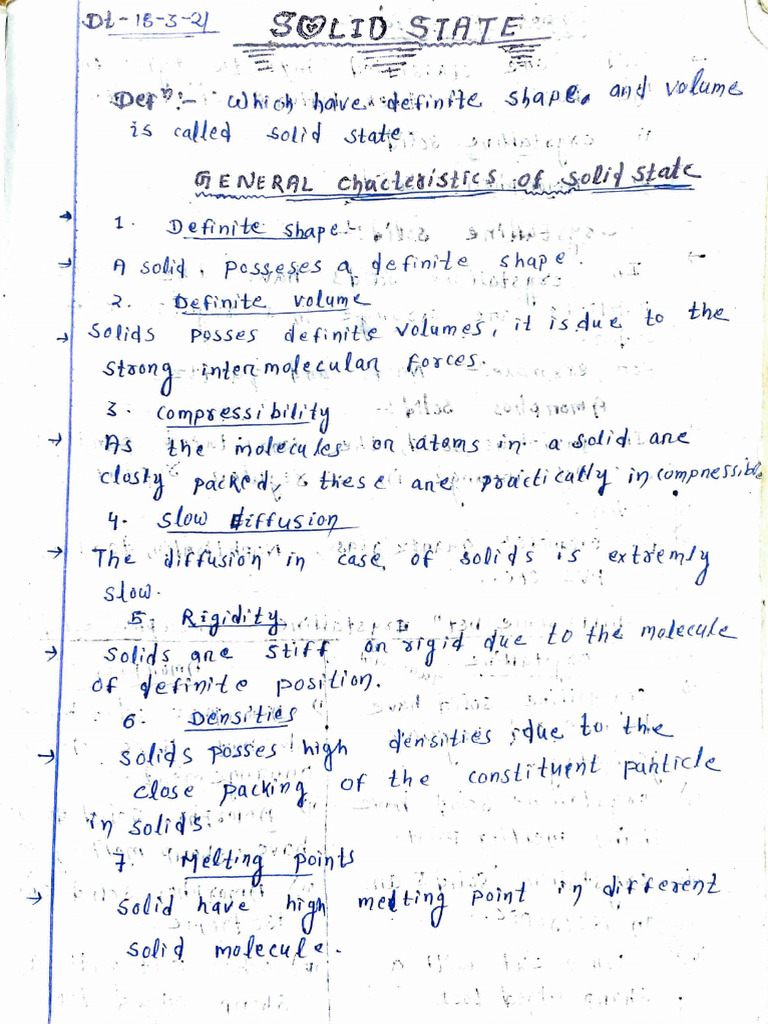 Dt-18-3-21
SOLID STATE
Defn:- Which have definite shape. and volume
is called solid state.
GENERAL chacteristics of solid state
1. Definite shape:-
A solid. posseses a definite shape.
2. Definite volume
solids posses definite volumes, it is due to the
strong intermolecular forces.
3. compressibility
As the molecules or atoms in a solid are
closly packed, these are practically incompressible
4. slow diffusion
The diffusion in case of solids is extremly
slow.
5 Rigidity
solids are stiff or rigid due to the molecule
of definite position.
6. Densities
solids posses high densities due to the
close packing of the constituent particle
in solids
7. Melting points
solid have high melting point in different
solid molecule.